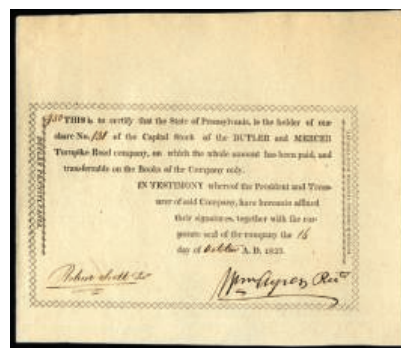 $50 THIS is to certify that the State of Pennsylvania, is the holder of one
share No. 131 of the Capital Stock of the BUTLER and MERCER
Turnpike Road company, on which the whole amount has been paid, and
transferrable on the Books of the Company only.
IN TESTIMONY whereof the President and Treas-
urer of said Company, have hereunto affixed
their signatures, together with the cor-
porate seal of the company the 16
day of October A. D. 1823.
Robert Scott Tr
Wm Ayres Pr